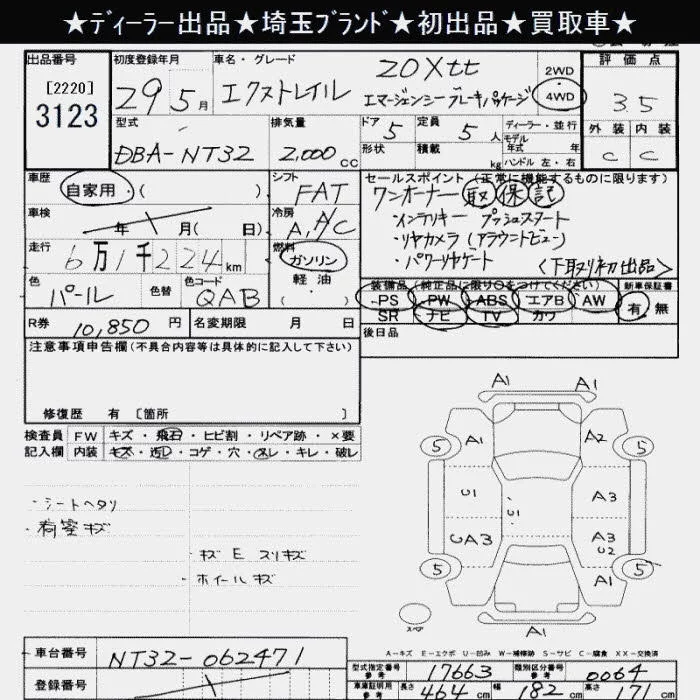 ★ディーラー出品★埼玉ブランド★初出品★買取車★
出品番号
[2220]
3123
初度登録年月
29 5月
車名・グレード
エクストレイル 20Xtt
エマージェンシーブレーキパッケージ
2WD
4WD
評価点
3.5
外装 内装
C C
型式
DBA-NT32
排気量
2,000cc
ドア 5
形状
定員 5人
積載 kg
ディーラー・並行
モデル
年式 年
ハンドル 左・右
車歴
自家用・( )
シフト
FAT
車検
年 月( 日)
冷房
A/C
走行
6万1千224km
燃料
ガソリン
軽油
・( )
色
パール
色替
色コード
QAB
R券 10,850円
名変期限 月 日
セールスポイント(正常に機能するものに限ります)
ワンオーナー 取 保 記
・インテリキー プッシュスタート
・リヤカメラ(アラウンドビュー)
・パワーリヤゲート
<下取り初出品>
装備品(純正品に限り○をつけてください)
PS PW ABS エアB AW
SR ナビ TV カワ
新車保証書
有 無
後日品
注意事項申告欄(不具合内容等は具体的に記入して下さい)
修復歴 有 〔箇所 〕
検査員
記入欄
FW キズ・飛石・ヒビ割・リペア跡・×要
内装 キズ・汚れ・コゲ・穴・スレ・キレ・破レ
・シートヘタリ
・荷室キズ
・キズ E スリキズ
・ホイールキズ
A1 A1
5 A1 A2 5
U1 U1 A3
UA3 A3
U2
5 A1 5
A1
スペア
A－キズ E－エクボ U－凹み W－補修跡 S－サビ C－腐食 XX－交換済
車台番号
NT32-062471
登録番号
型式指定番号
参考
17663
類別区分番号
参考
0064
車庫証明用
参考
長さ 464cm
幅 182cm
高さ 171cm